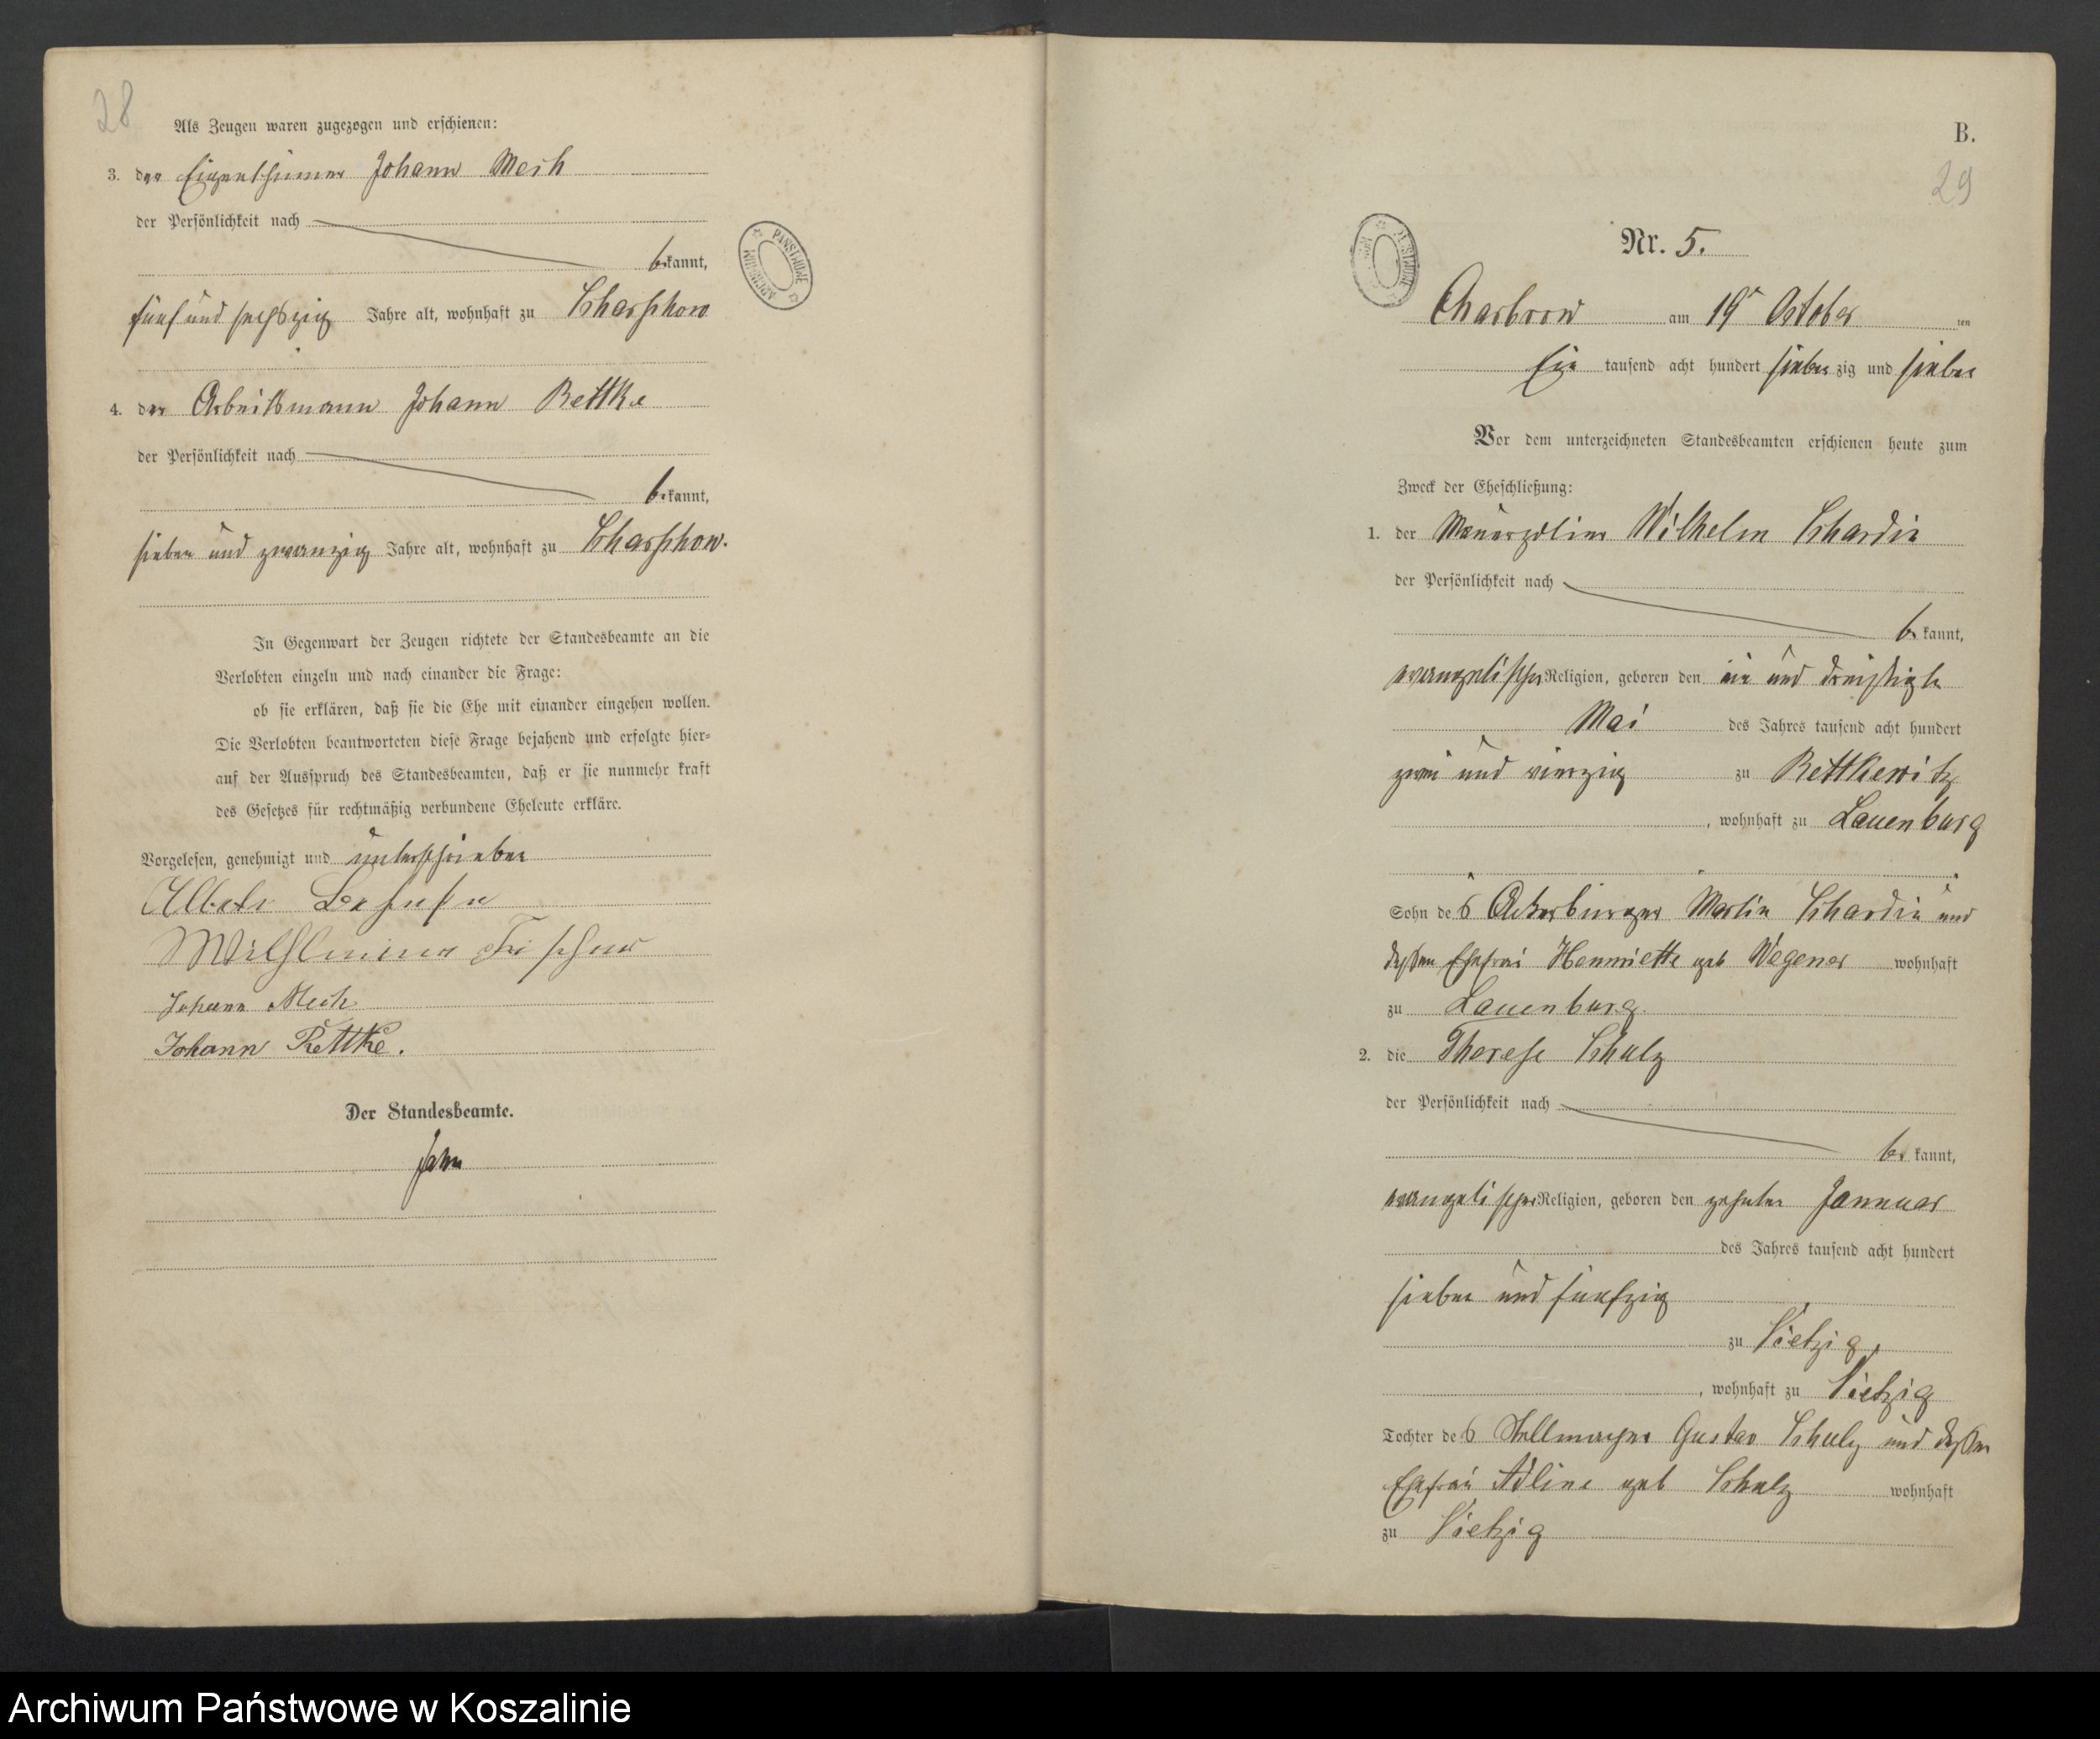 28
Als Zeugen waren zugezogen und erschienen:
3. der Eigenthümer Johann Mech
der Persönlichkeit nach
bekannt,
fünf und sechszig Jahre alt, wohnhaft zu Scharschow
4. der Arbeitsmann Johann Rettke
der Persönlichkeit nach
bekannt,
sieben und zwanzig Jahre alt, wohnhaft zu Scharschow.
In Gegenwart der Zeugen richtete der Standesbeamte an die
Verlobten einzeln und nach einander die Frage:
ob sie erklären, daß sie die Ehe mit einander eingehen wollen.
Die Verlobten beantworteten diese Frage bejahend und erfolgte hier=
auf der Ausspruch des Standesbeamten, daß er sie nunmehr kraft
des Gesetzes für rechtmäßig verbundene Eheleute erkläre.
Vorgelesen, genehmigt und unterschrieben
Wilhlmine Fischer
Johann Mech
Johann Rettke.
Der Standesbeamte.
ARCHIWUM PAŃSTWOWE
B.
29
Nr. 5.
Charbrow am 19 October ten
Ein tausend acht hundert siebenzig und sieben
Vor dem unterzeichneten Standesbeamten erschienen heute zum
Zweck der Eheschließung:
1. der Maurerpolier Wilhelm Schardin
der Persönlichkeit nach
bekannt,
evangelischer Religion, geboren den ein und dreißigsten
Mai des Jahres tausend acht hundert
zwei und vierzig zu Rettkewitz
, wohnhaft zu Lauenburg
Sohn des Ackerbürger Martin Schardin und
dessen Ehefrau Hennriette geb Wegener wohnhaft
zu Lauenburg.
2. die Therese Schulz
der Persönlichkeit nach
bekannt,
evangelischer Religion, geboren den zehnten Jannuar
des Jahres tausend acht hundert
sieben und funfzig
zu Vietzig,
, wohnhaft zu Vietzig
Tochter des Stellmacher Gustav Schulz und dessen
Ehefrau Adline geb Schulz wohnhaft
zu Vietzig
Archiwum Państwowe w Koszalinie